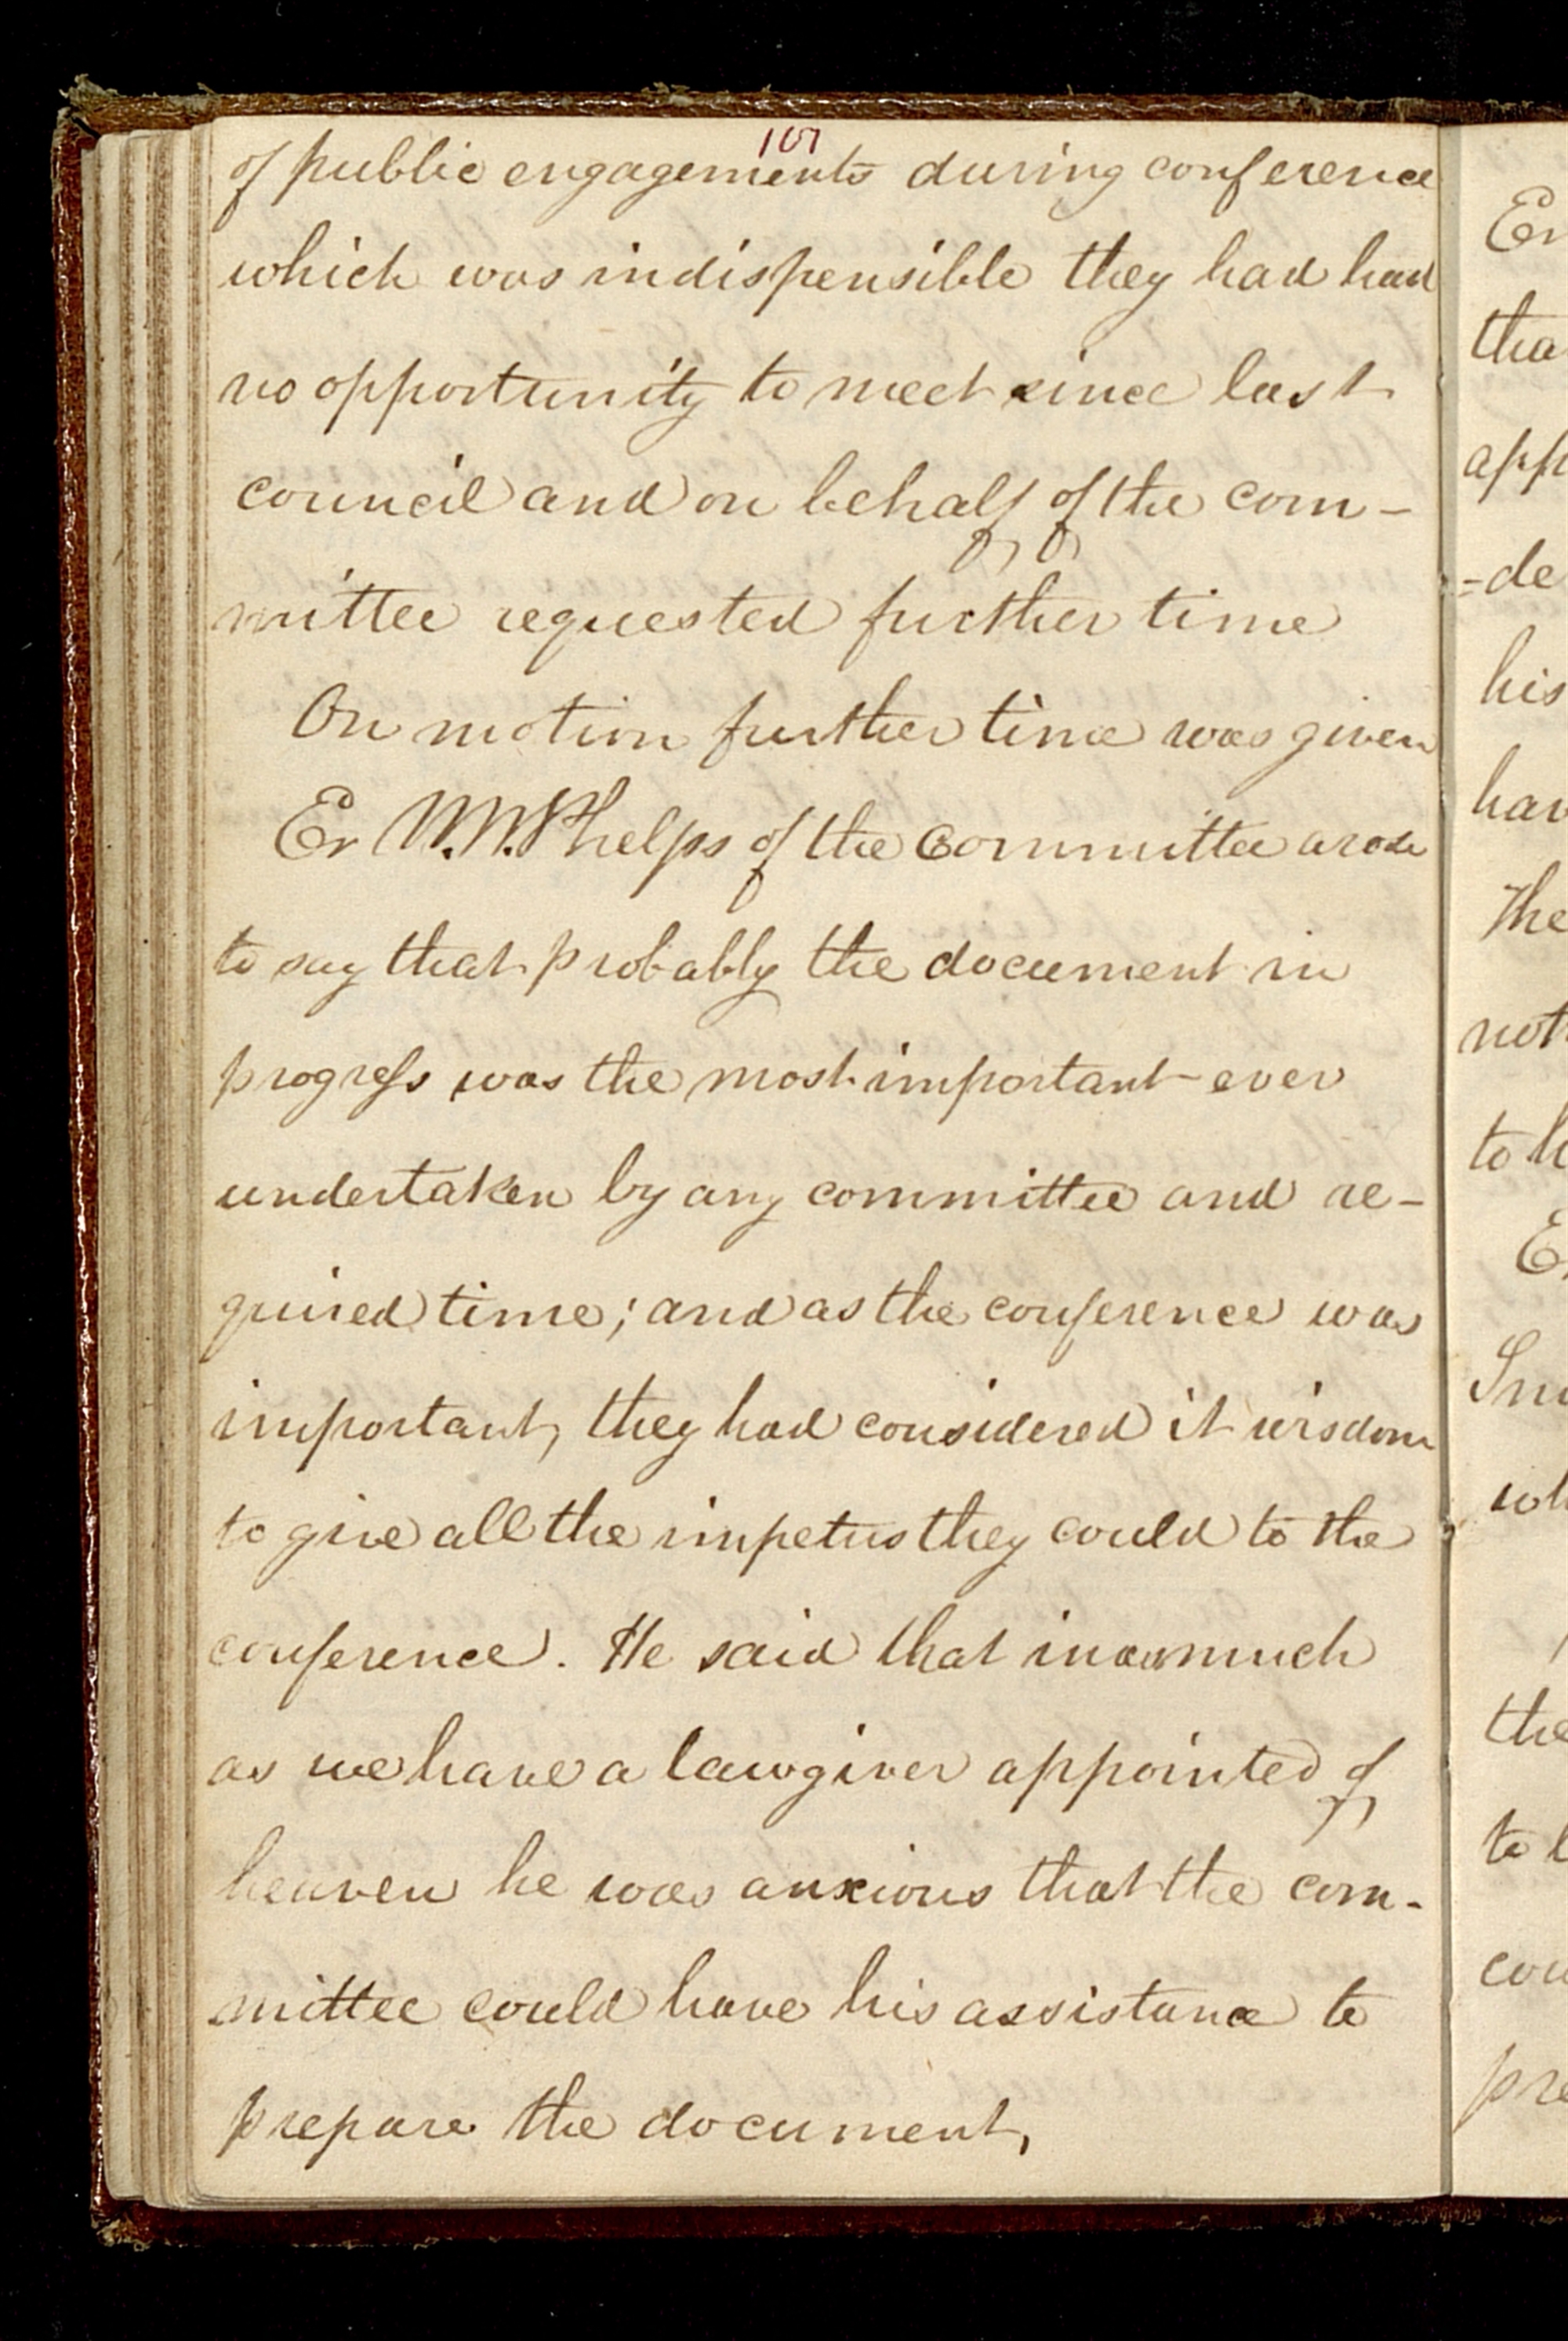 107
of public engagements during conference
which was indispensible they had had
no opportunity to meet since last
council and on behalf of the com-
mittee requested further time
On motion further time was given
Er W. W. Phelps of the Committee arose
to say that probably the document in
progress was the most important ever
undertaken by any committee and re-
quired time; and as the conference was
important, they had considered it wisdom
to give all the impetus they could to the
conference. He said that inasmuch
as we have a lawgiver appointed of
heaven he was anxious that the com-
mittee could have his assistance to
prepare the document,
Er
tha
app
=de
his
hav
The
not
to h
E
wh
the
to
cou
pre